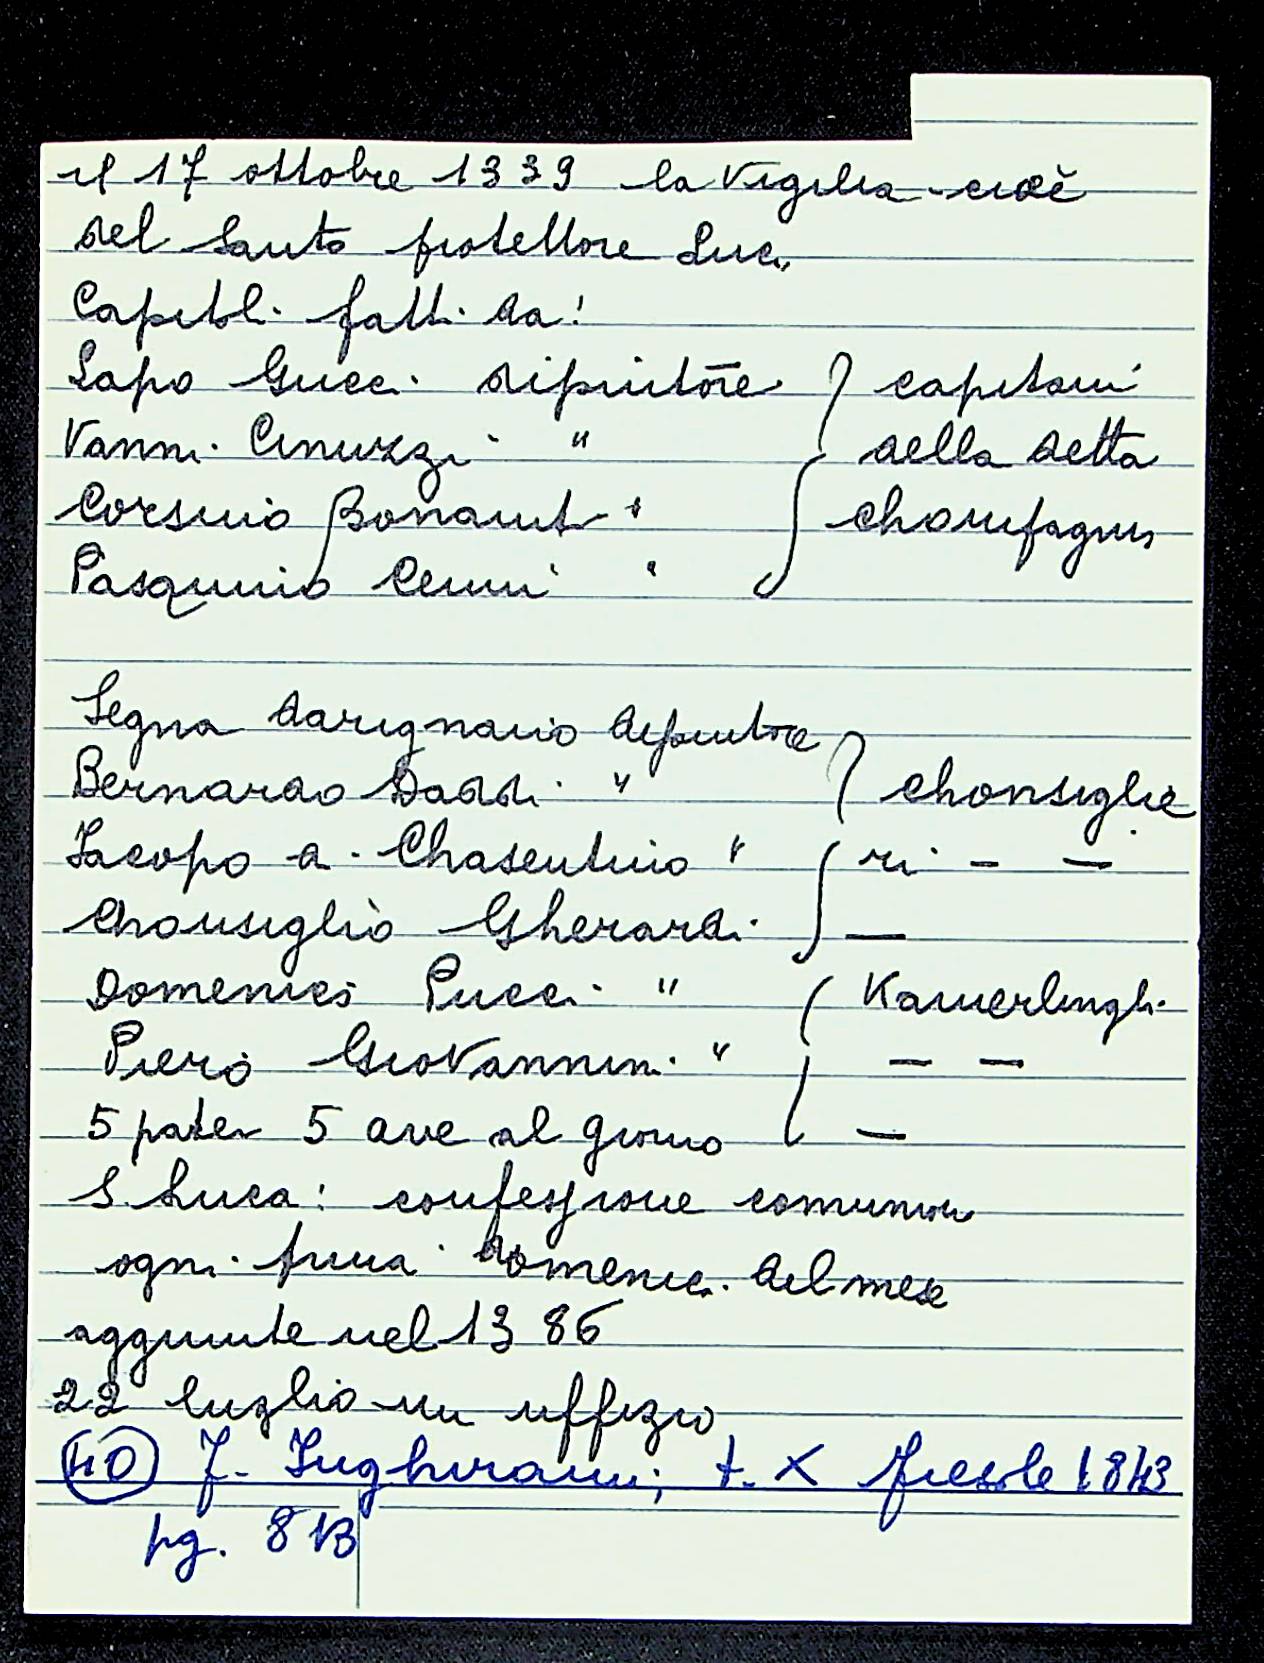 il 17 ottobre 1339 la Vigilia cioè
del Santo protettore Luca
Capitoli fatti da:
Lapo Gucci dipintōre } capitani
Vanni Cinuzzi " della detta
Corsino Bonaiuti " chompagnia
Pasquino Cenni "
Segna darignano dipintore } chonsiglie
Bernardo Daddi "
Jacopo d. Chasentino " ri - -
Chonsiglio Gherardi -
Domenico Pucci " ( Kamerlinghi
Piero Giovannini " - -
5 pater 5 ave al giorno -
S. Luca: confessione comunion
ogni prima domenica del mese
aggiunte nel 1386
22 luglio un uffizio
40 F. Inghirami, t. X Fiesole 1843
pg. 813